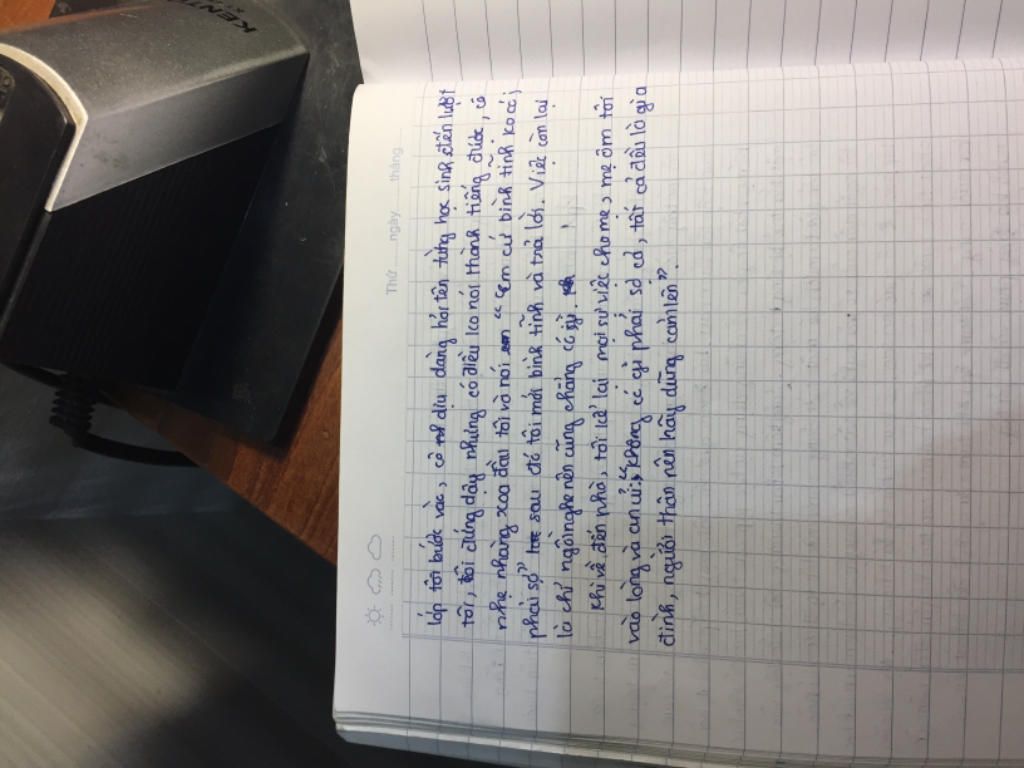 KENT
Thứ ........ ngày ........ tháng ........
lớp tôi bước vào, cô dịu dàng hỏi tên từng học sinh đến lượt
tôi, tôi đứng dậy nhưng có điều ko nói thành tiếng được, cô
nhẹ nhàng xoa đầu tôi và nói "em cứ bình tĩnh ko có j
phải sợ" sau đó tôi mới bình tĩnh và trả lời. Việc còn lại
là chỉ ngồi nghe nên cũng chẳng có gì.
Khi về đến nhà, tôi kể lại mọi sự việc cho mẹ, mẹ ôm tôi
vào lòng và an ủi: "Không có gì phải sợ cả, tất cả đều là gia
đình, người thân nên hãy dũng cảm lên".